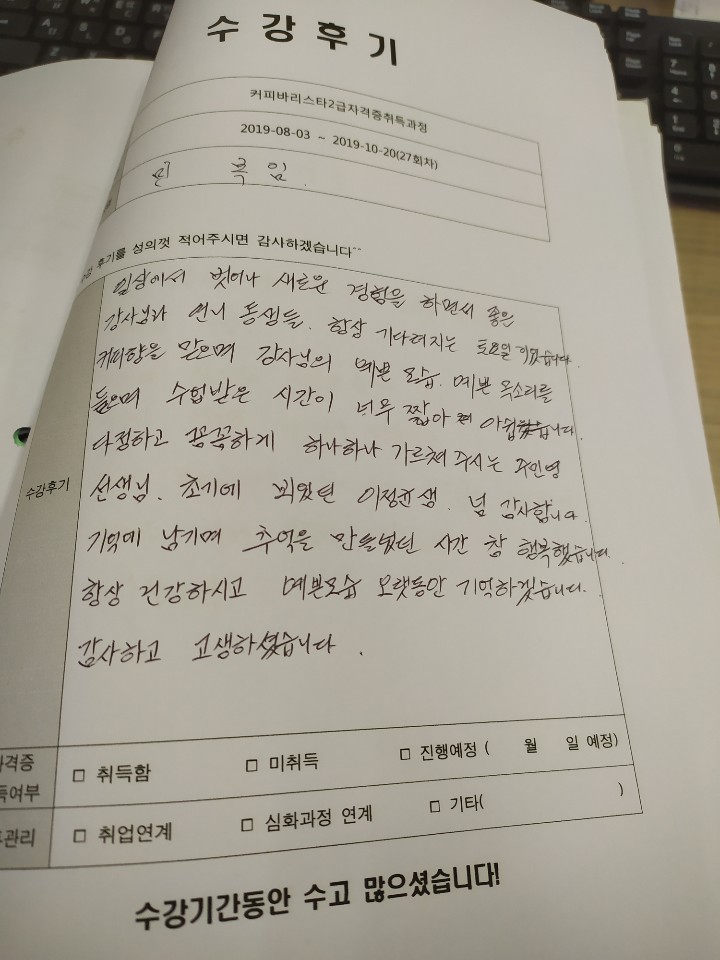 수강후기
커피바리스타2급자격증취득과정
2019-08-03 ~ 2019-10-20(27회차)
민 복 임
후기를 성의껏 적어주시면 감사하겠습니다^^
일상에서 벗어나 새로운 경험을 하면서 좋은
강사님과 언니 동생들. 항상 기다려지는 토요일 이었습니다.
커피향을 맡으며 강사님의 예쁜 모습. 예쁜 목소리를
들으며 수업받은 시간이 너무 짧아 아쉽습니다.
다정하고 꼼꼼하게 하나하나 가르쳐 주시는 주민영
수강후기
선생님. 초기에 뵈었던 이정윤샘. 넘 감사합니다
기억에 남기며 추억을 만들었던 시간 참 행복했습니다.
항상 건강하시고 예쁜모습 오랫동안 기억하겠습니다.
감사하고 고생하셨습니다.
□ 취득함 □ 미취득 □ 진행예정 ( 월 일 예정)
득여부
관리 □ 취업연계 □ 심화과정 연계 □ 기타( )
수강기간동안 수고 많으셨습니다!